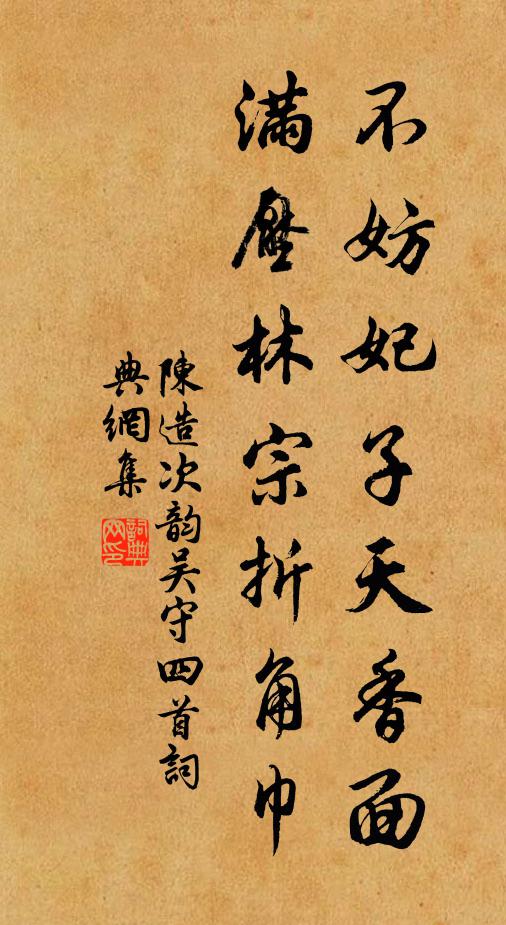 不妨妃子天香面
滿壓林宗折角巾
陳造次韵吴守四首詞
典網集
詞典网印